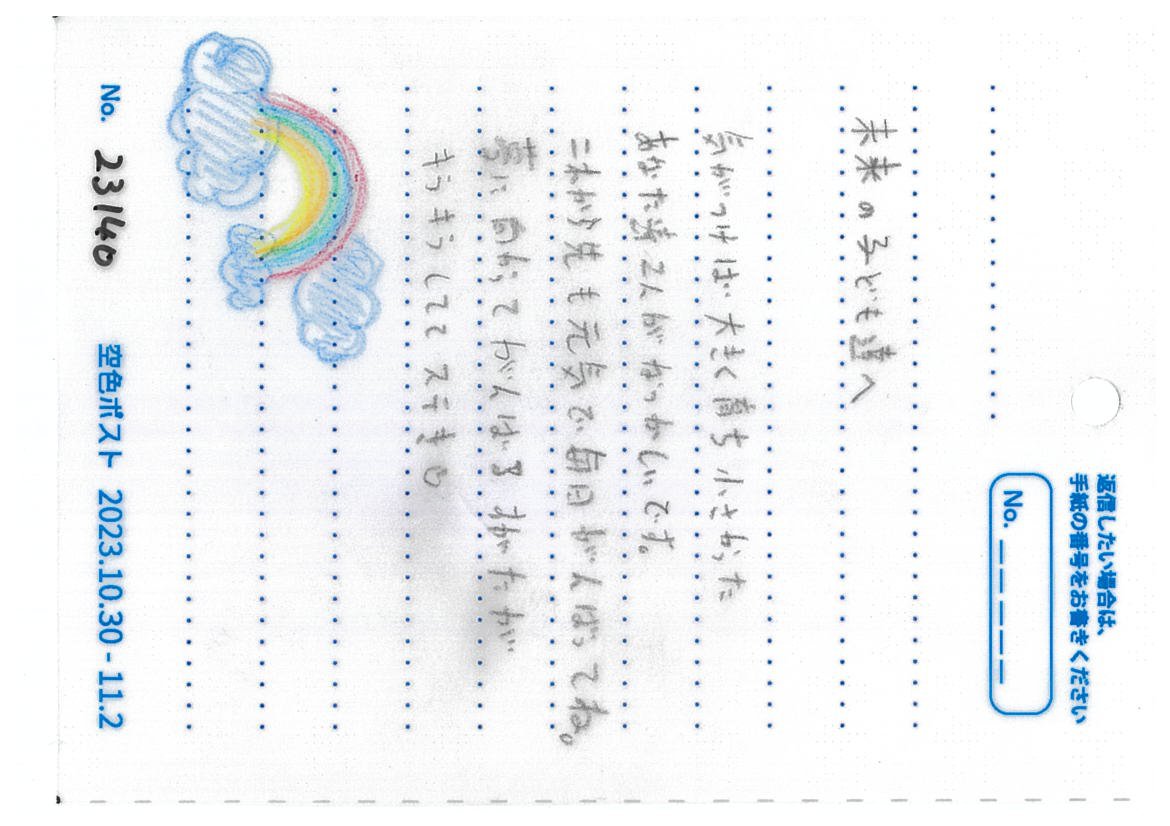 返信したい場合は、
手紙の番号をお書きください
No. _ _ _ _ _
未来の子ども達へ
気がつけば大きく育ち小さかった
あなた達2人がなつかしいです。
これから先も元気で毎日がんばってね。
夢に向かってがんばるすがたが
キラキラしててステき♡
No. 23140
空色ポスト 2023.10.30 - 11.2